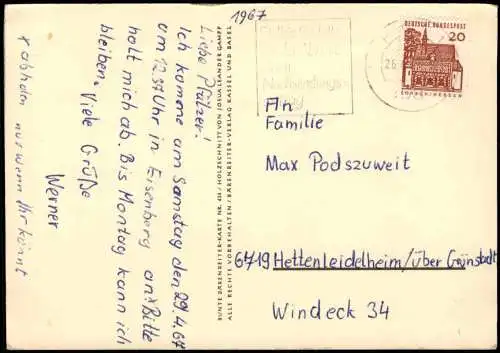 1967
Liebe Pfälzer!
Ich komme am Samstag den 29.4.67
um 12.37 Uhr in Eisenberg an x Bitte
holt mich ab. Bis Montag kann ich
bleiben. Viele Grüße
Werner
x abholen nur wenn Ihr könnt
BUNTE BÄRENREITER-KARTE NR. / HOLZSCHNITT VON JOSUA LEANDER GAMPP
ALLE RECHTE VORBEHALTEN / BÄRENREITER-VERLAG KASSEL UND BASEL
DEUTSCHE BUNDESPOST
20
LORSCH/HESSEN
An
Familie
Max Podszuweit
6719 Hettenleidelheim/über Grünstadt
Windeck 34